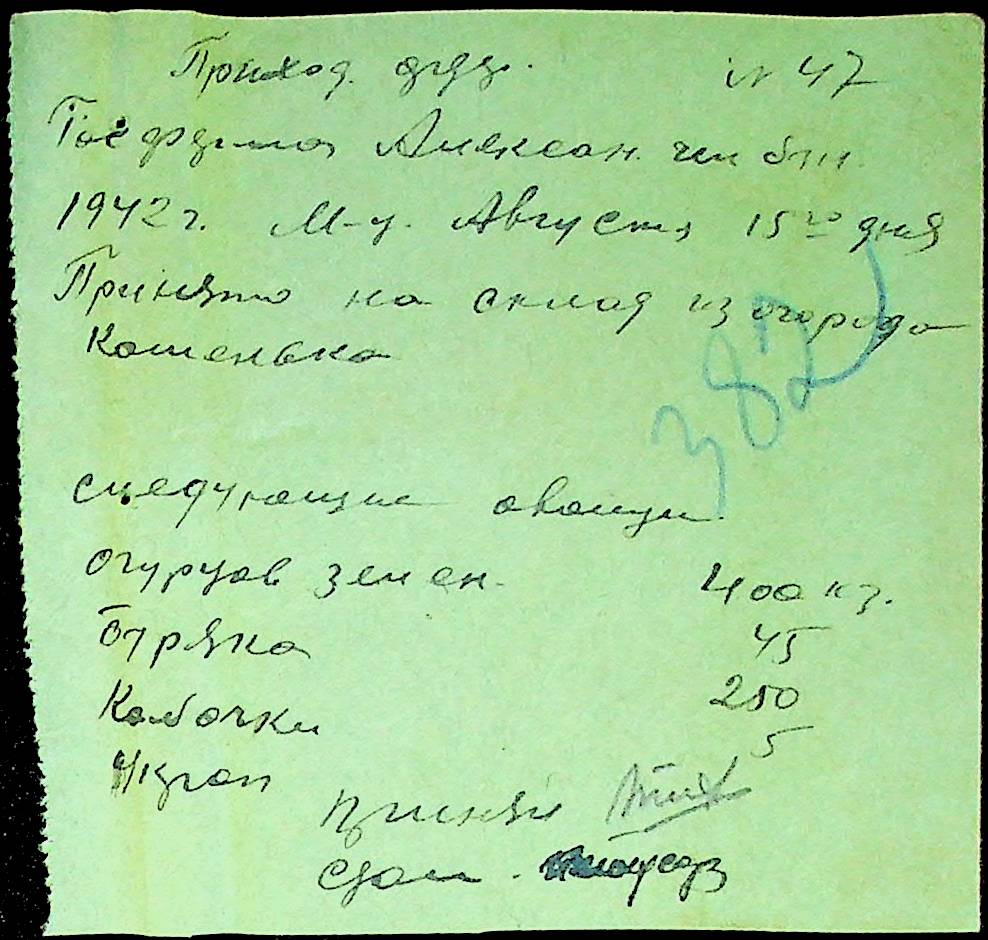 Приход. орд. № 47
Госферма Алексан. чи бтн.
1942 г. М-ц. Августа 15го дня
Принято на склад из огорода
Кошенька
382
следующие авощи.
огурцов зелен. 400 кг.
Буряка 45
Кабочки 250
Укроп 5
принял
сдал